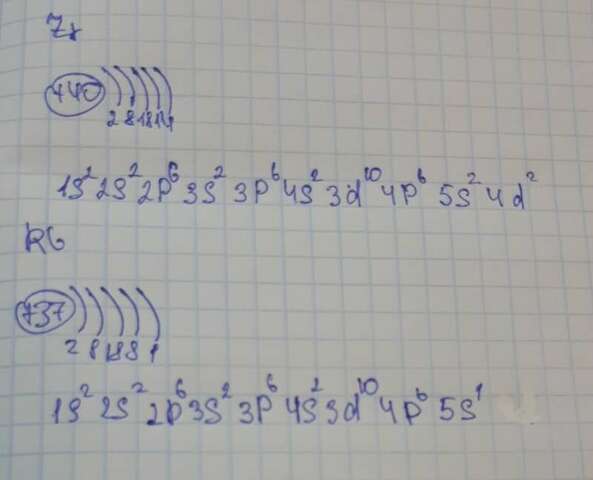 Zr
+40
2 8 18 1
1s² 2s² 2p⁶ 3s² 3p⁶ 4s² 3d¹⁰ 4p⁶ 5s² 4d²
Rb
+37
2 8 18 8 1
1s² 2s² 2p⁶ 3s² 3p⁶ 4s² 3d¹⁰ 4p⁶ 5s¹